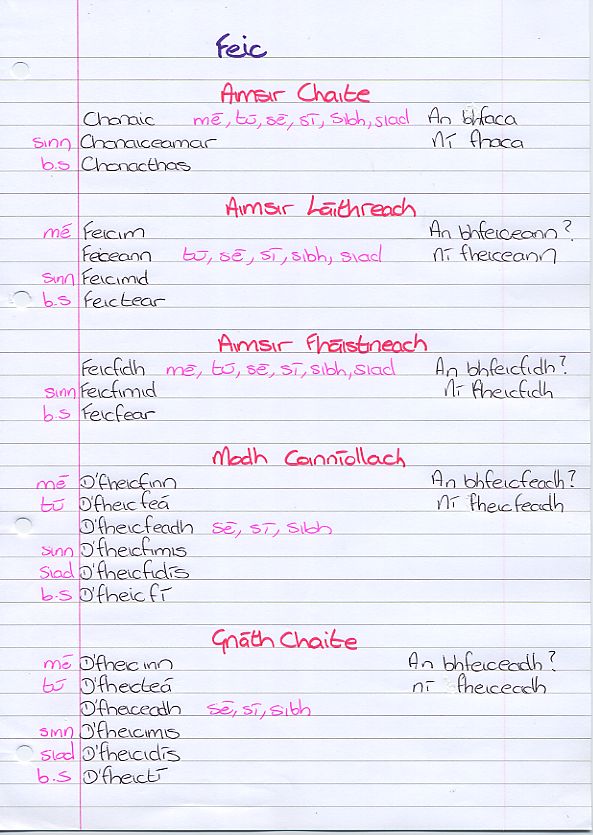 Feic
Aimsir Chaite
Chonaic mé, tú, sé, sí, sibh, siad An bhfaca
sinn Chonaiceamar Ní fhaca
b.s Chonacthas
Aimsir Láithreach
mé Feicim An bhfeiceann?
Feiceann tú, sé, sí, sibh, siad Ní fheiceann
sinn Feicimid
b.s Feictear
Aimsir Fháistineach
Feicfidh mé, tú, sé, sí, sibh, siad An bhfeicfidh?
sinn Feicfimid Ní fheicfidh
b.s Feicfear
Modh Coinníollach
mé D'fheicfinn An bhfeicfeadh?
tú D'fheicfeá Ní fheicfeadh
D'fheicfeadh sé, sí, sibh
sinn D'fheicfimis
siad D'fheicfidís
b.s D'fheicfí
Gnáth Chaite
mé D'fheicinn An bhfeiceadh?
tú D'fheicteá ní fheiceadh
D'fheiceadh sé, sí, sibh
sinn D'fheicimis
siad D'fheicidís
b.s D'fheictí